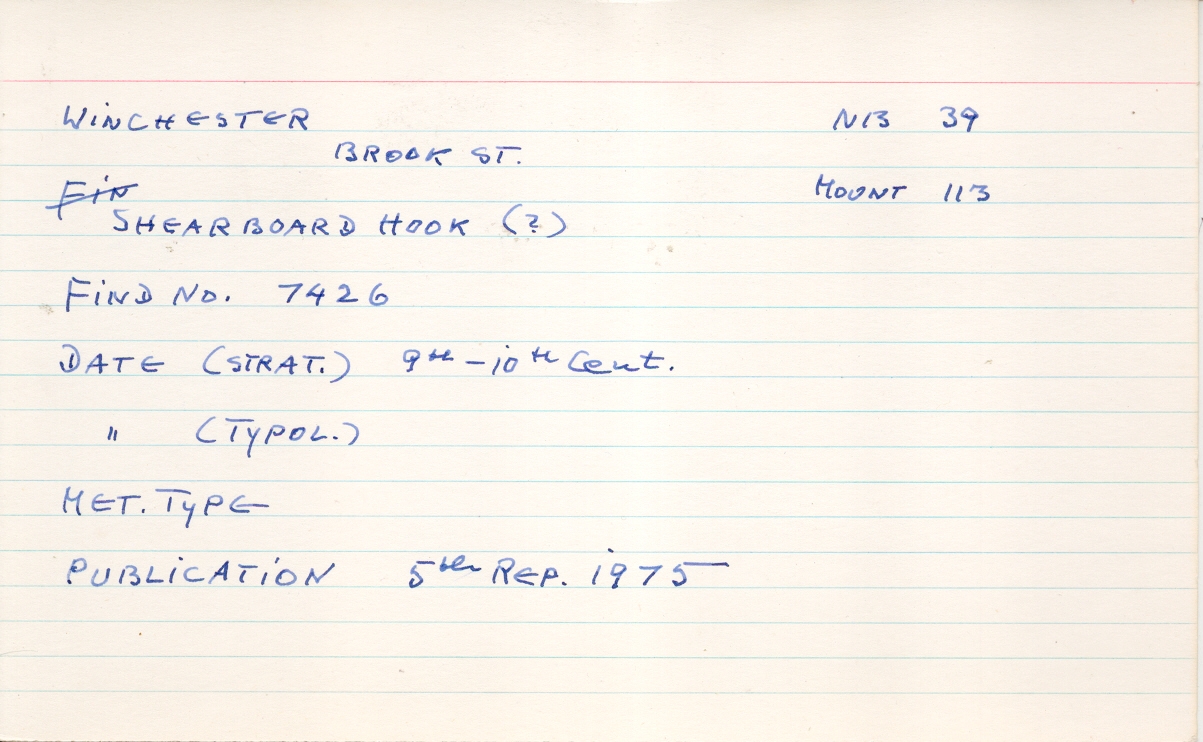 WINCHESTER NB 39
BROOK ST.
MOUNT 113
FIN
SHEARBOARD HOOK (?)
FIND NO. 7426
DATE (STRAT.) 9th - 10th Cent.
" (TYPOL.)
MET. TYPE
PUBLICATION 5th REP. 1975